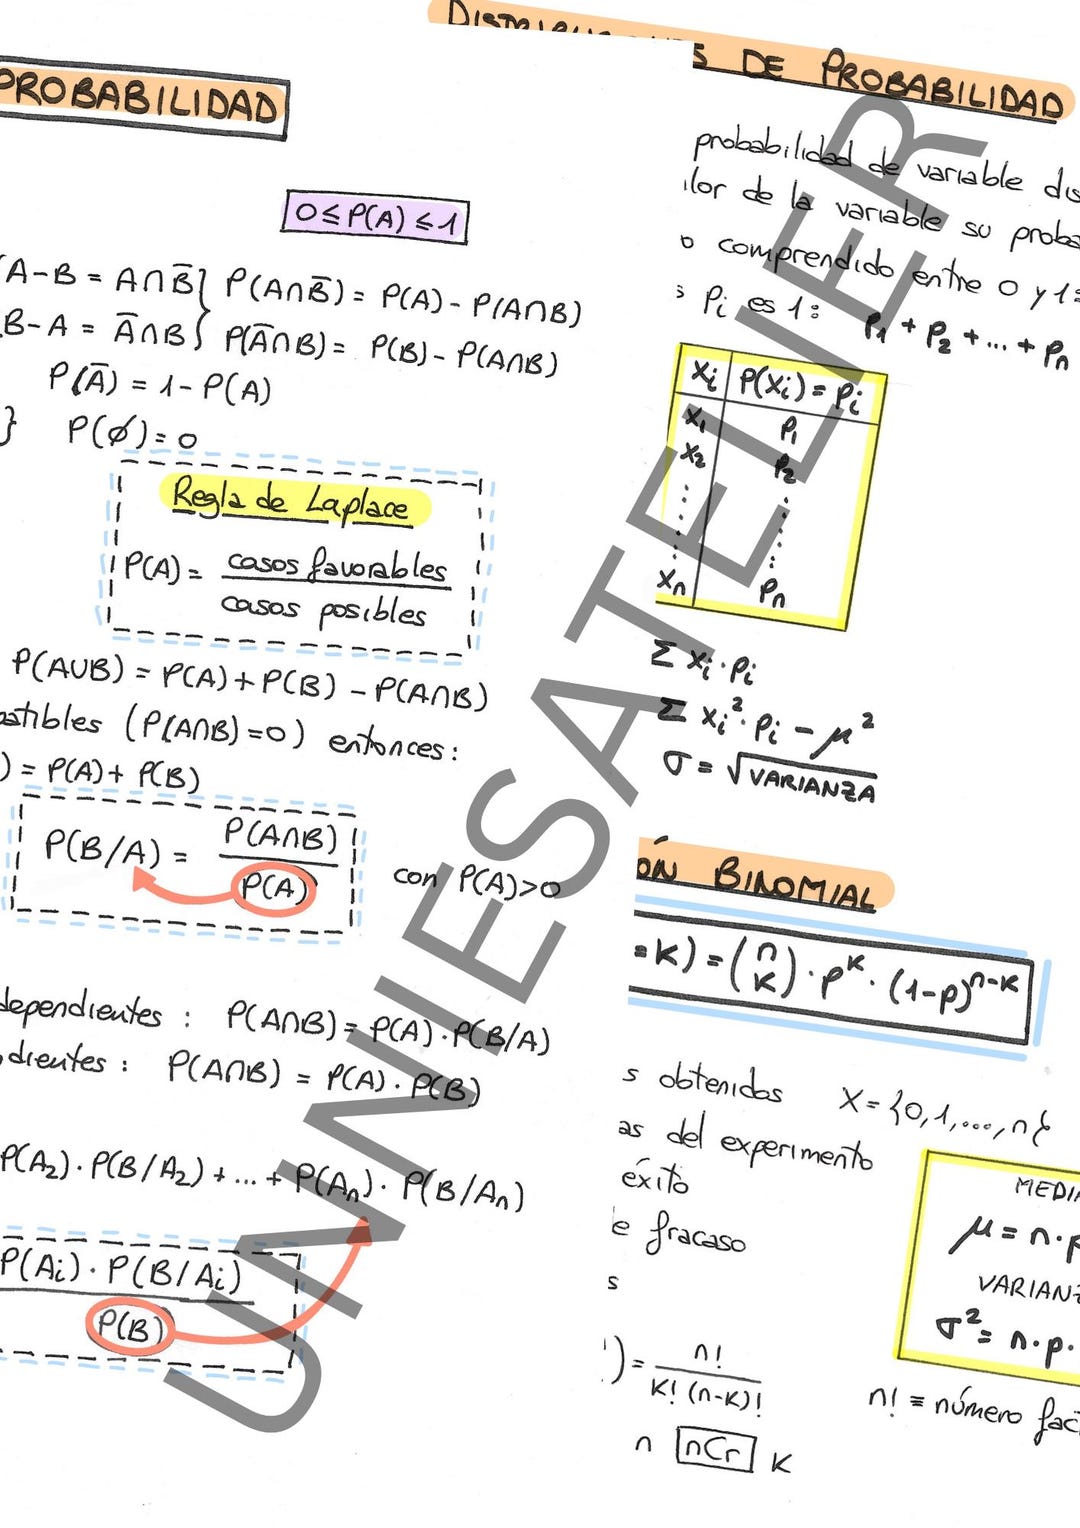 PROBABILIDAD
0 ≤ P(A) ≤ 1
A-B = A∩B̅ } P(A∩B̅) = P(A) - P(A∩B)
B-A = A̅∩B } P(A̅∩B) = P(B) - P(A∩B)
P(A̅) = 1 - P(A)
} P(∅) = 0
Regla de Laplace
P(A) = casos favorables
casos posibles
P(A∪B) = P(A) + P(B) - P(A∩B)
(P(A∩B) = 0) entonces:
) = P(A) + P(B)
P(B/A) = P(A∩B)
P(A)
con P(A)>0
dependientes: P(A∩B) = P(A)·P(B/A)
dientes: P(A∩B) = P(A)·P(B)
P(A₂)·P(B/A₂) + ... + P(Aₙ)·P(B/Aₙ)
P(Aᵢ)·P(B/Aᵢ)
P(B)
DE PROBABILIDAD
probabilidad de variable dis
lor de la variable su proba
o comprendido entre 0 y 1:
s Pᵢ es 1: P₁ + P₂ + ... + Pₙ
Xᵢ P(Xᵢ) = Pᵢ
X₁ P₁
X₂ P₂
Xₙ Pₙ
Σ Xᵢ·Pᵢ
Σ Xᵢ²·Pᵢ - μ²
σ = √VARIANZA
ÓN BINOMIAL
=K) = (n K)·p^K·(1-p)^n-K
s obtenidos X = {0,1,...,n}
as del experimento
éxito
e fracaso
s
) = n!
K! (n-K)!
n nCr K
MEDIA
μ = n·p
VARIANZ
σ² = n·p·
n! ≡ número fact
UANNIESATELIER